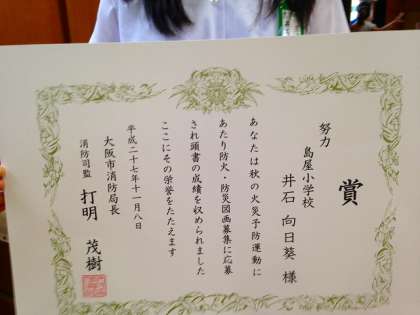 賞
努力
島屋小学校
井石 向日葵 様
あなたは秋の火災予防運動に
あたり防火・防災図画募集に応募
され頭書の成績を収められました
ここにその栄誉をたたえます
平成二十七年十一月八日
大阪市消防局長
消防司監 打明 茂樹